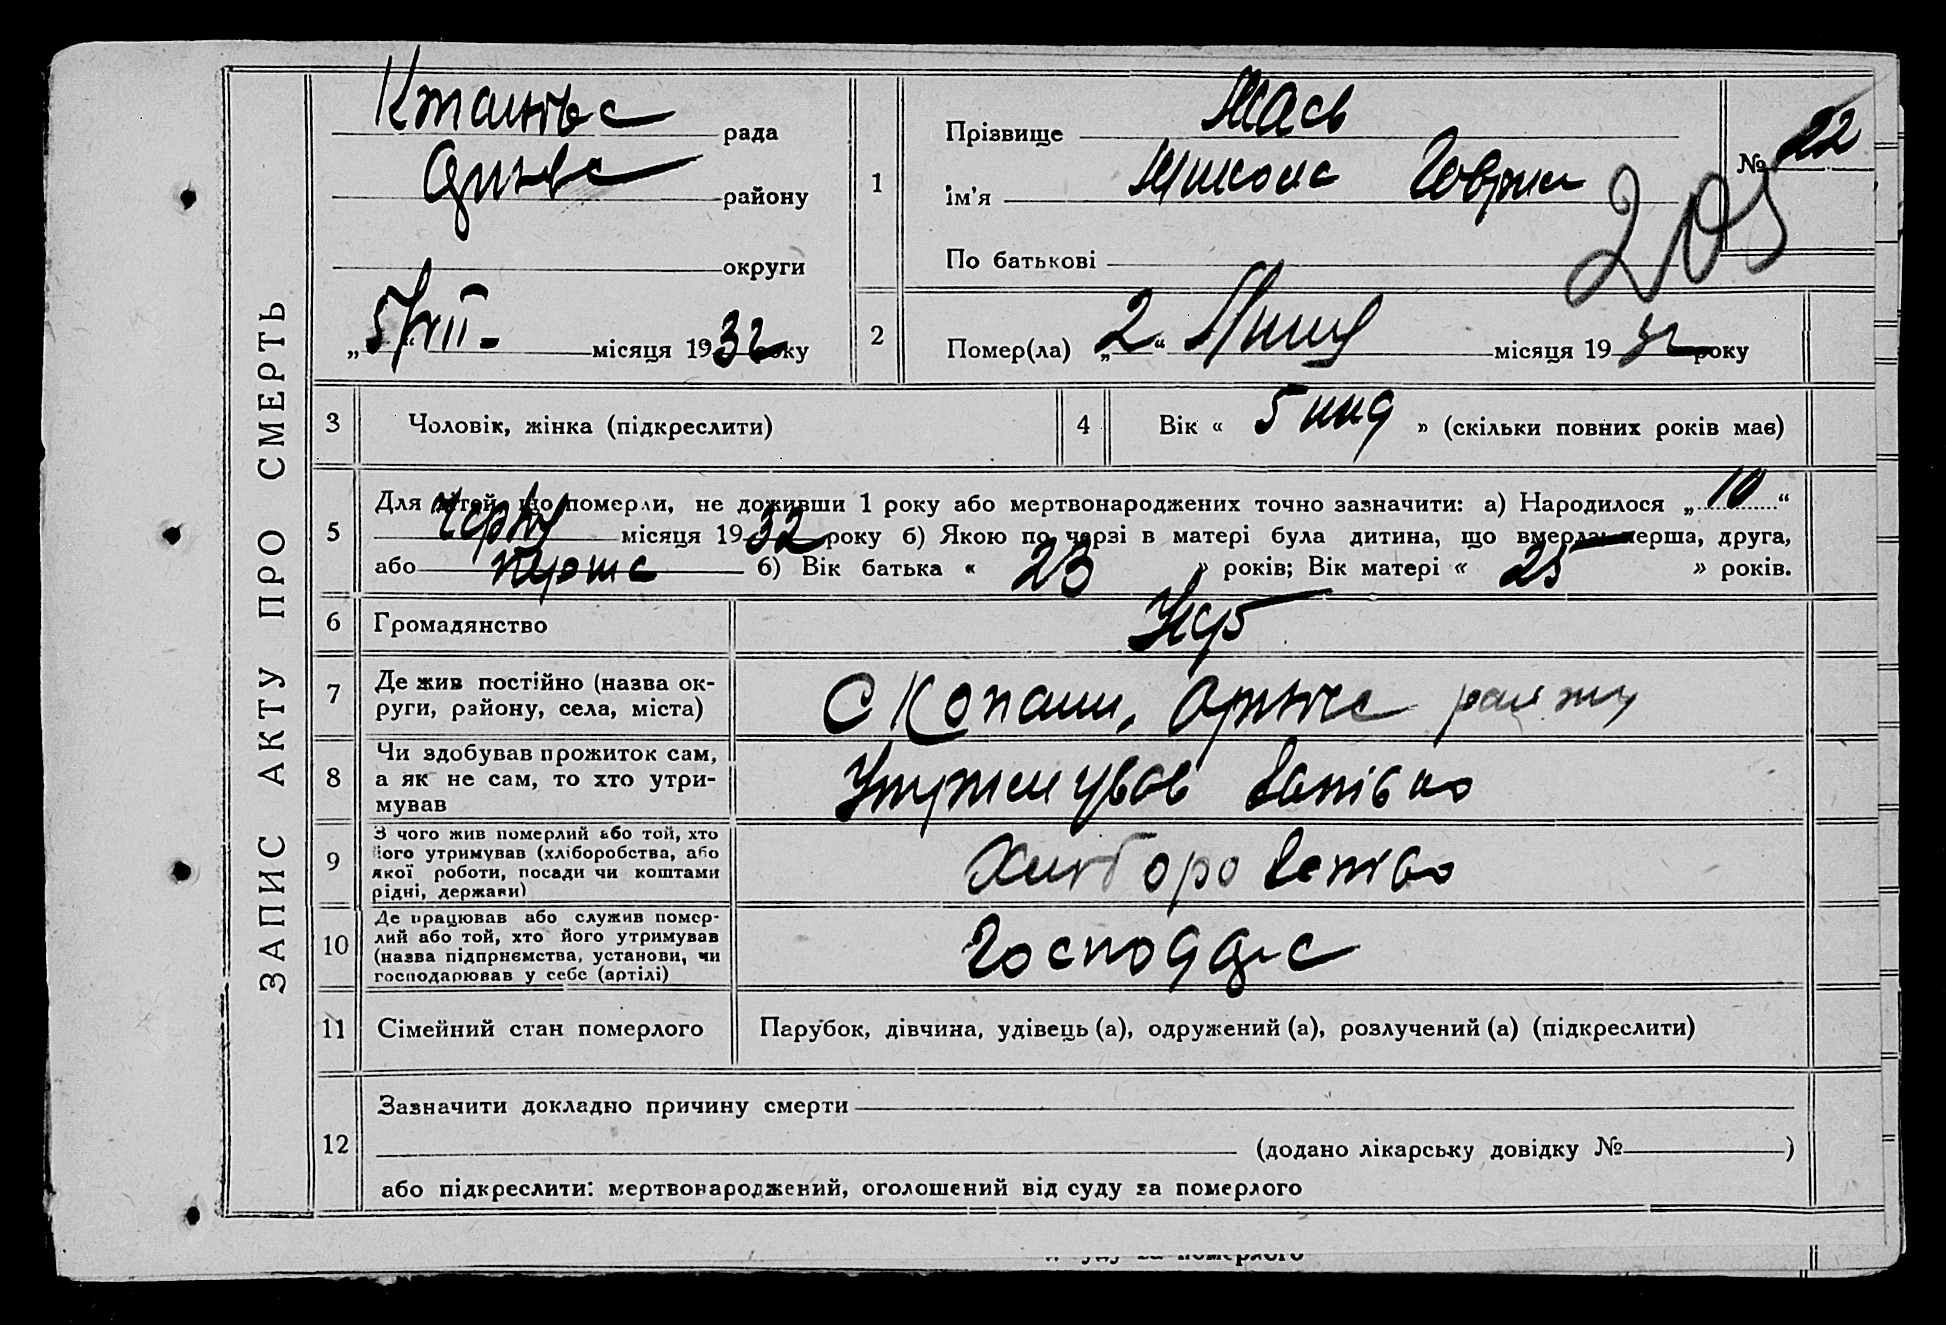 ЗАПИС АКТУ ПРО СМЕРТЬ
рада
району
округи
„5/VII- місяця 1932 року
1
Прізвище
ім'я Микола
По батькові
№ 22
205
2
Помер(ла) „2“ Липня місяця 1932 року
3 Чоловік, жінка (підкреслити)
4 Вік « 5 » (скільки повних років має)
5
Для дітей, що померли, не доживши 1 року або мертвонароджених точно зазначити: а) Народилося „10“
місяця 1932 року б) Якою по черзі в матері була дитина, що вмерла: перша, друга,
або перша б) Вік батька « 23 » років; Вік матері « 25 » років.
6 Громадянство Укр
7 Де жив постійно (назва ок-
руги, району, села, міста)
С Копани, району
8 Чи здобував прожиток сам,
а як не сам, то хто утри-
мував
Утримував батько
9 З чого жив померлий або той, хто
його утримував (хліборобства, або
якої роботи, посади чи коштами
рідні, держави)
Хліборобство
10 Де працював або служив помер-
лий або той, хто його утримував
(назва підприємства, установи, чи
господарював у себе (артілі)
11 Сімейний стан померлого Парубок, дівчина, удівець (а), одружений (а), розлучений (а) (підкреслити)
12
Зазначити докладно причину смерти
(додано лікарську довідку № )
або підкреслити: мертвонароджений, оголошений від суду за померлого
суду за померлого